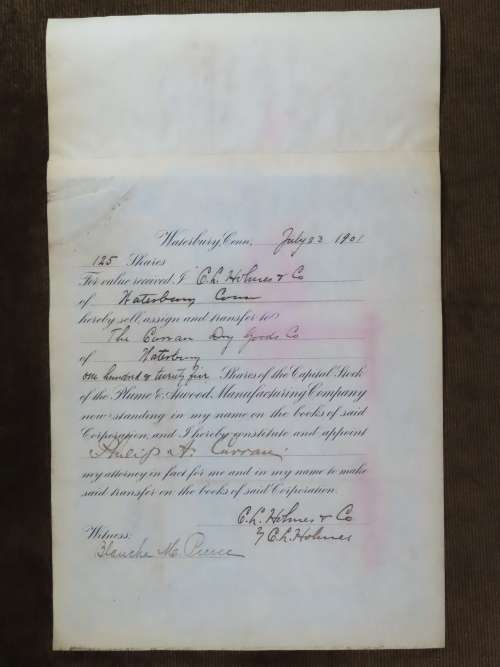 Waterbury, Conn. July 23 1901
125 Shares
For value received, I C. L. Holmes & Co
of Waterbury Conn
hereby sell, assign and transfer to
The Curran Dry Goods Co
of Waterbury
one hundred & twenty five Shares of the Capital Stock
of the Plume & Atwood Manufacturing Company
now standing in my name on the books of said
Corporation, and I hereby constitute and appoint
Philip A. Curran
my attorney in fact for me and in my name to make
said transfer on the books of said Corporation.
C. L. Holmes & Co
by C. L. Holmes
Witness:
Blanche M. Pierce